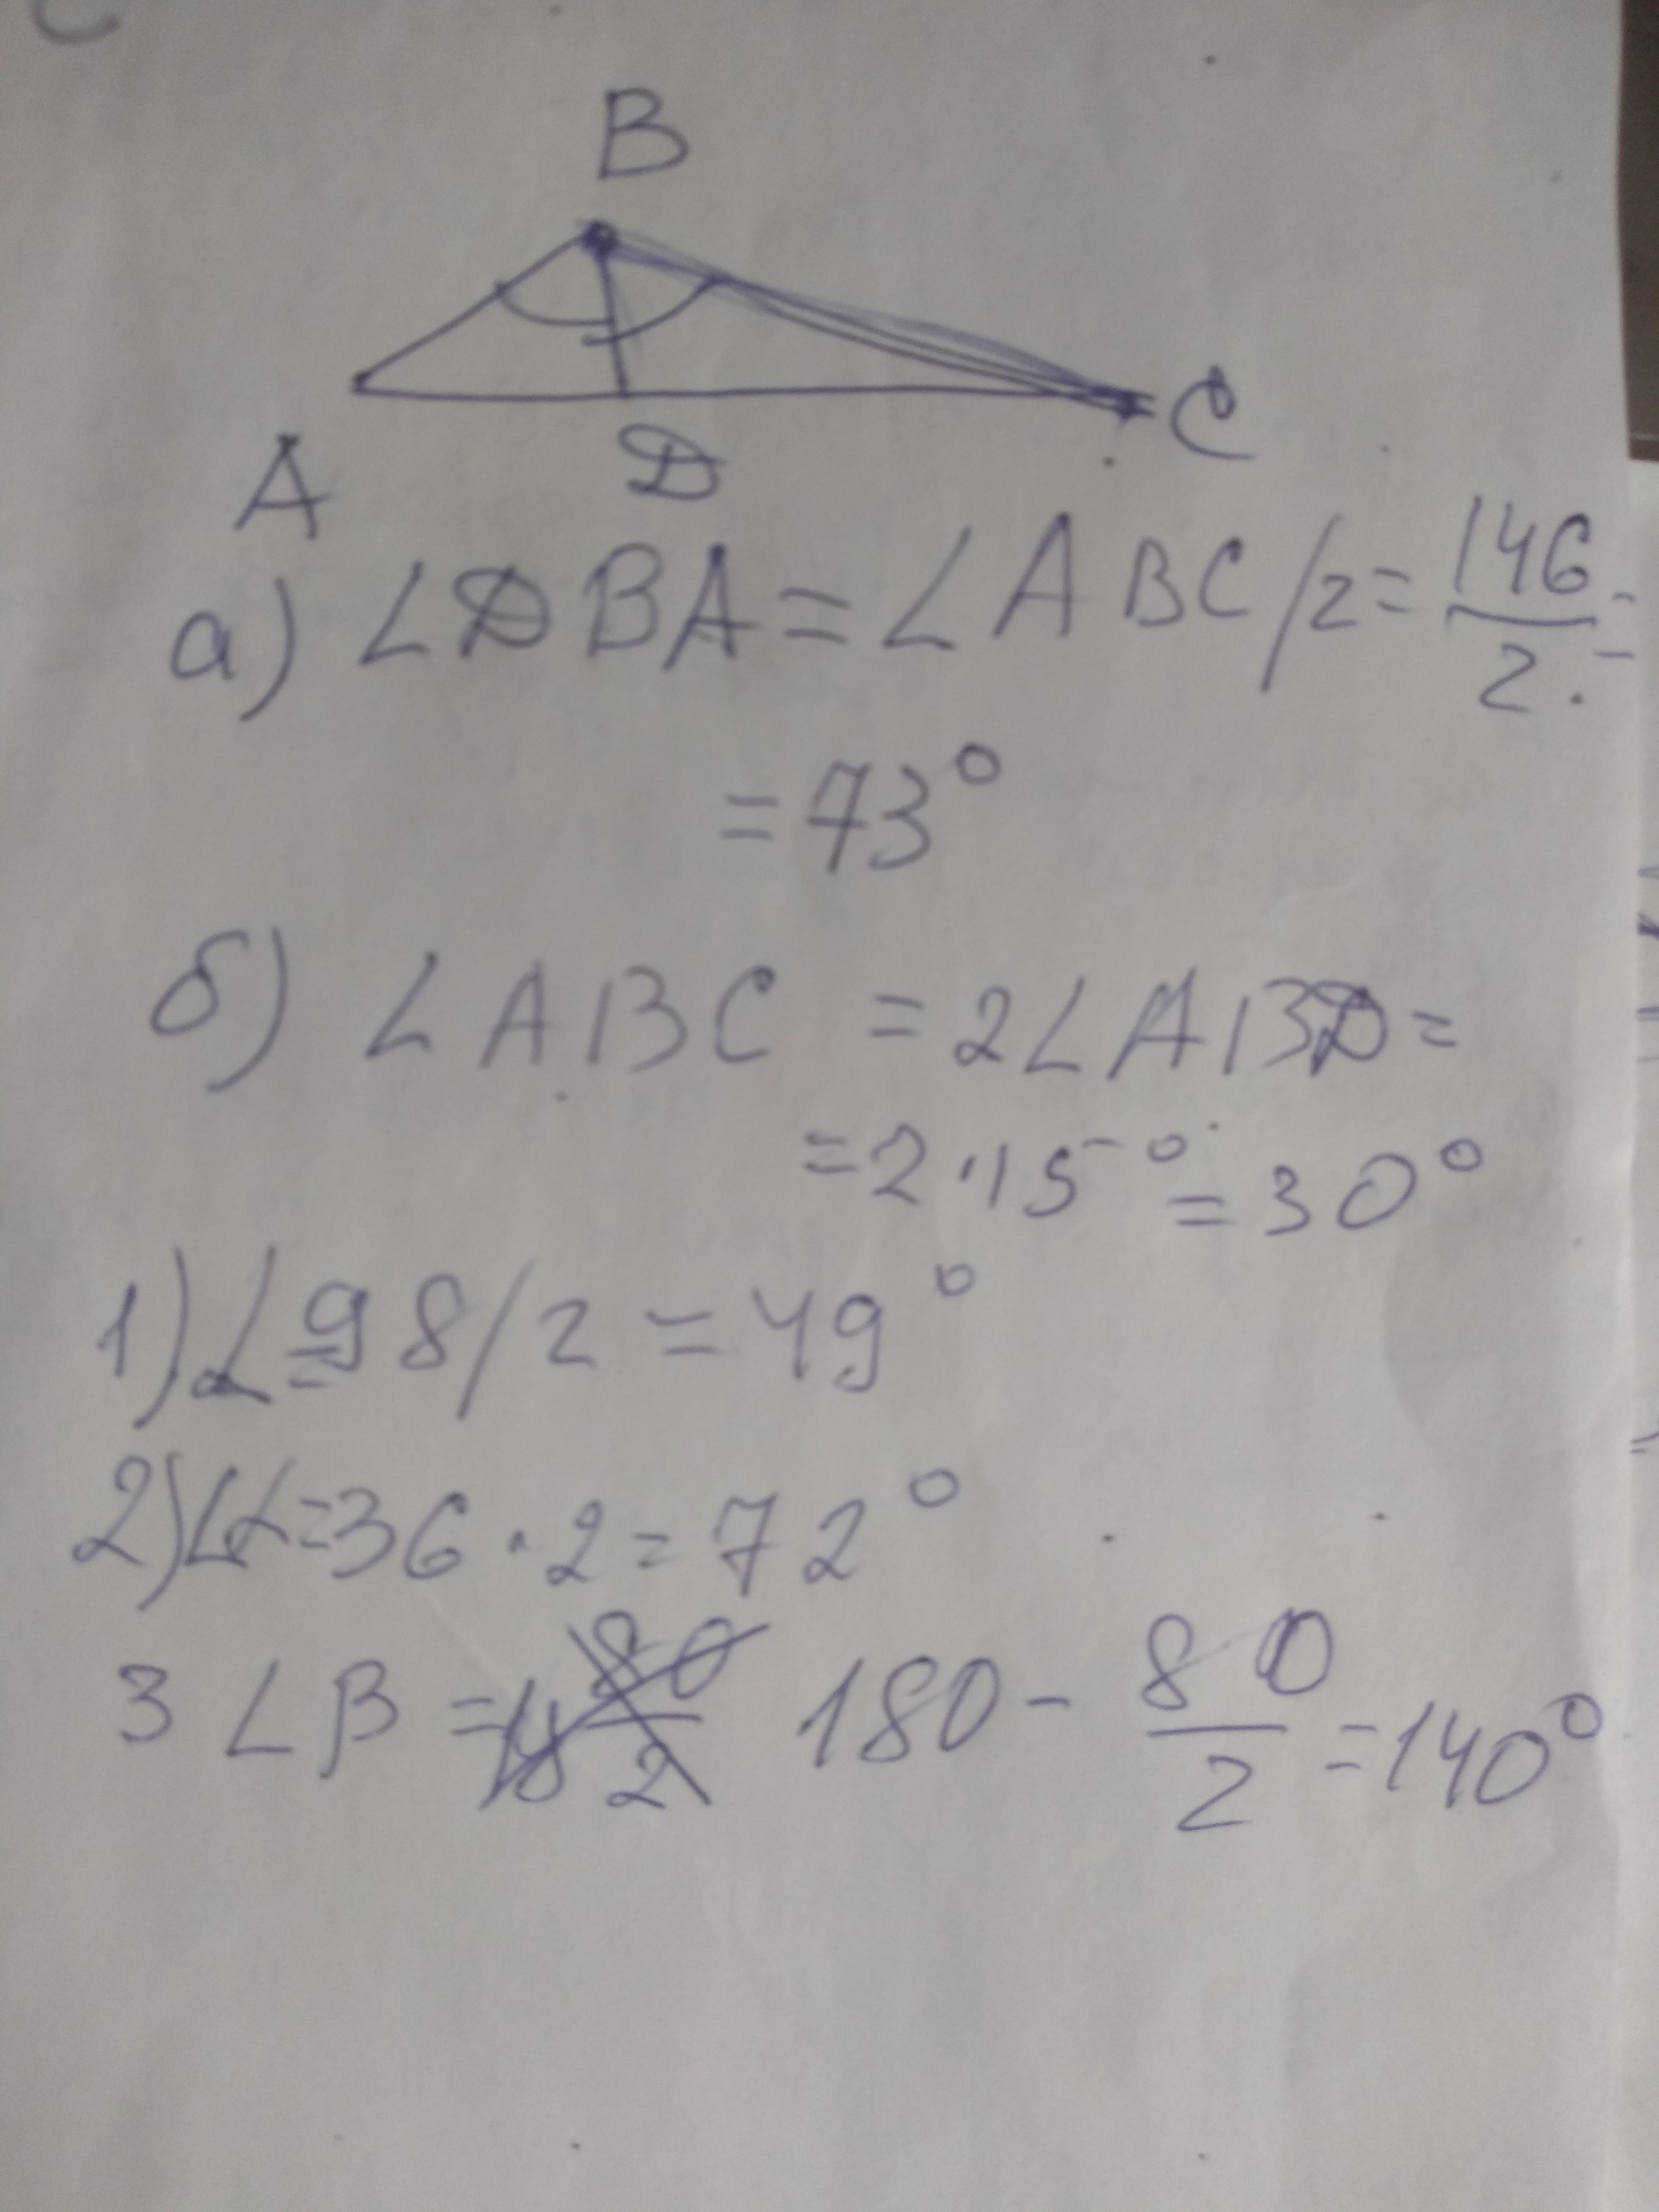 B
A D C
а) ∠DBA = ∠ABC/2 = 146/2 =
= 73°
б) ∠ABC = 2∠ABD =
= 2·15° = 30°
1) ∠ = 98/2 = 49°
2) ∠α = 36·2 = 72°
3 ∠β = 180 - 80/2 = 140°